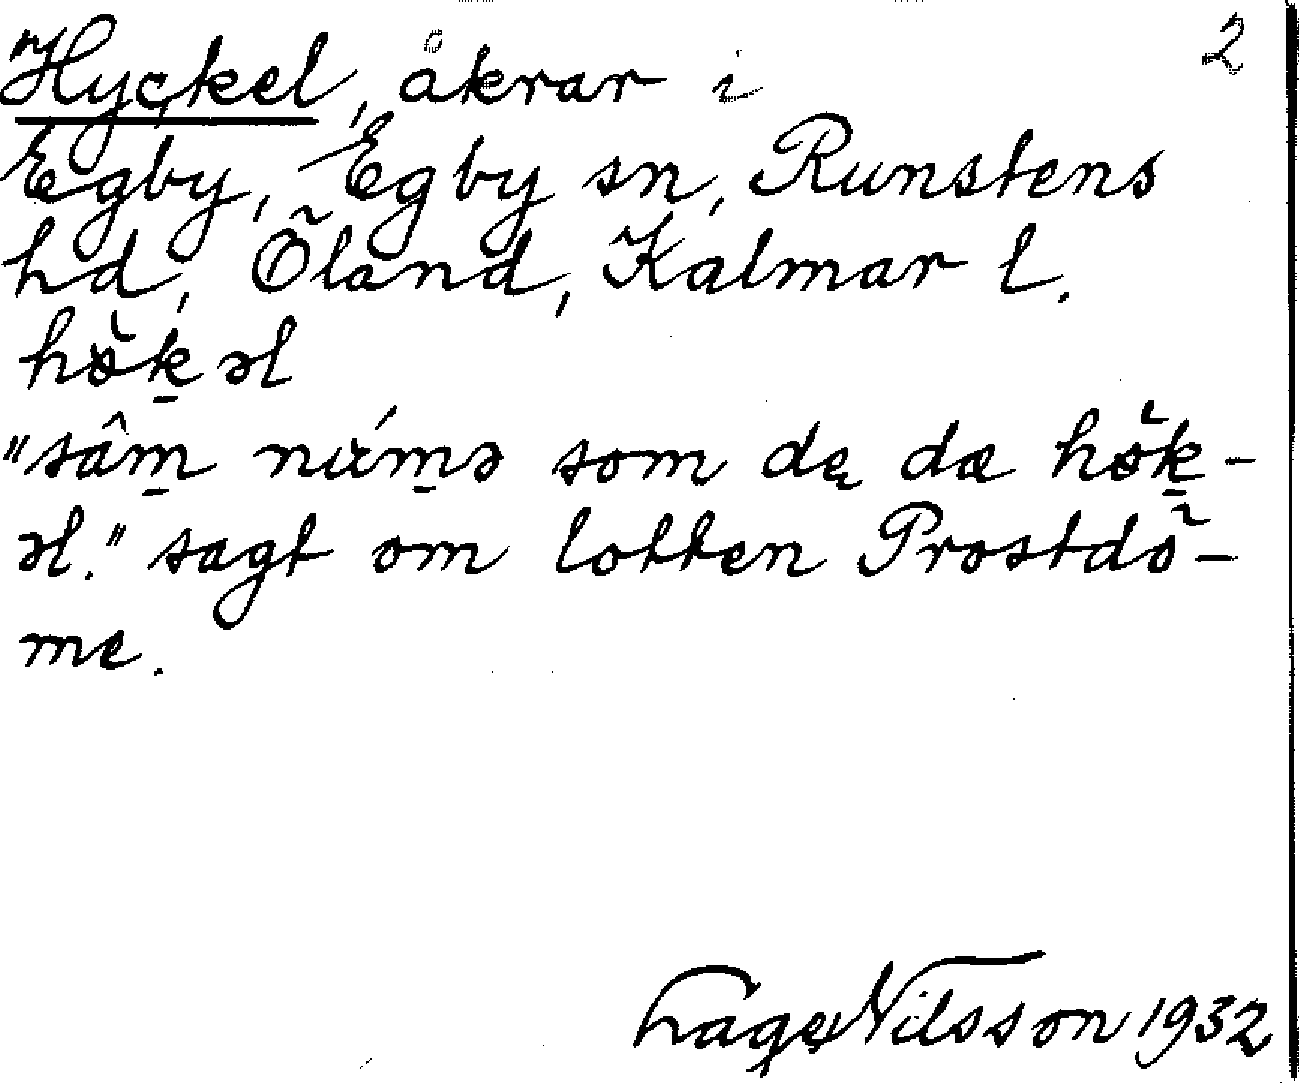 2
Hyckel, åkrar i
Egby, Egby sn, Runstens
hd, Öland, Kalmar l.
hö̀k̠əl
"sâm̠ nám̠ə som dę dæ hö̀k̠-
əl." sagt om lotten Prostdö-
me.
Lage Nilsson 1932